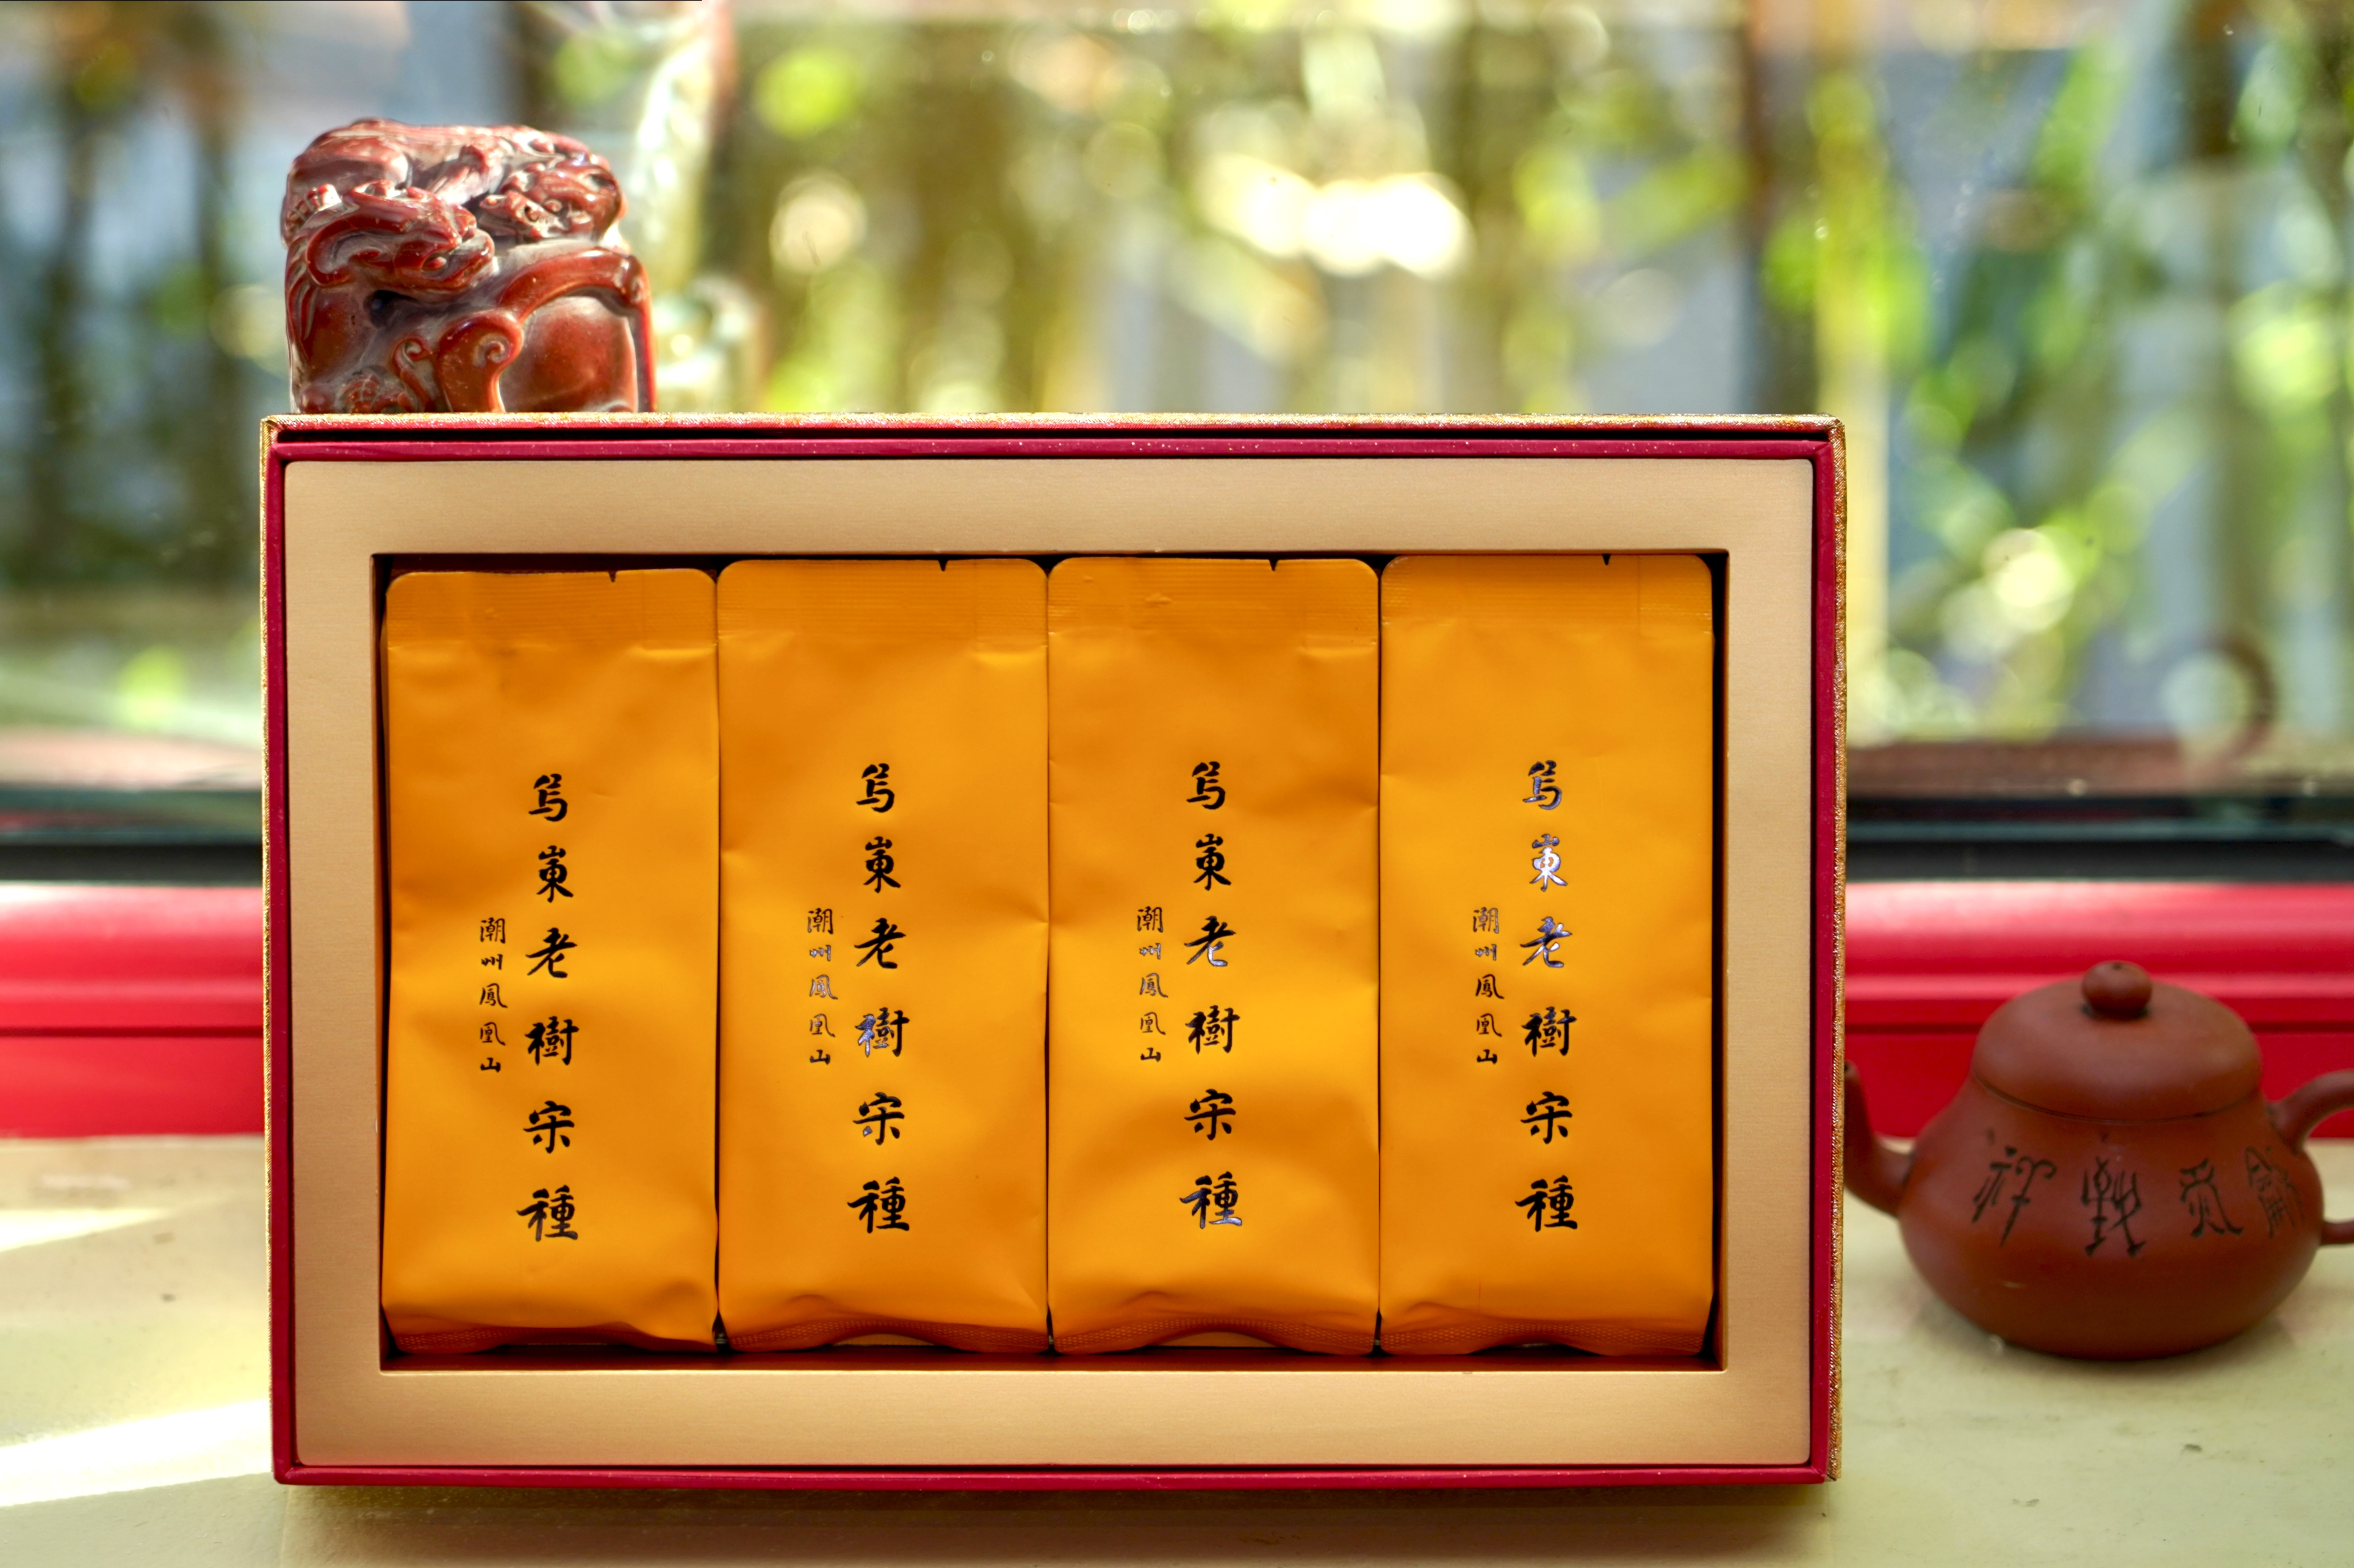 烏崬老樹宋種
潮州鳳凰山
烏崬老樹宋種
潮州鳳凰山
烏崬老樹宋種
潮州鳳凰山
烏崬老樹宋種
潮州鳳凰山